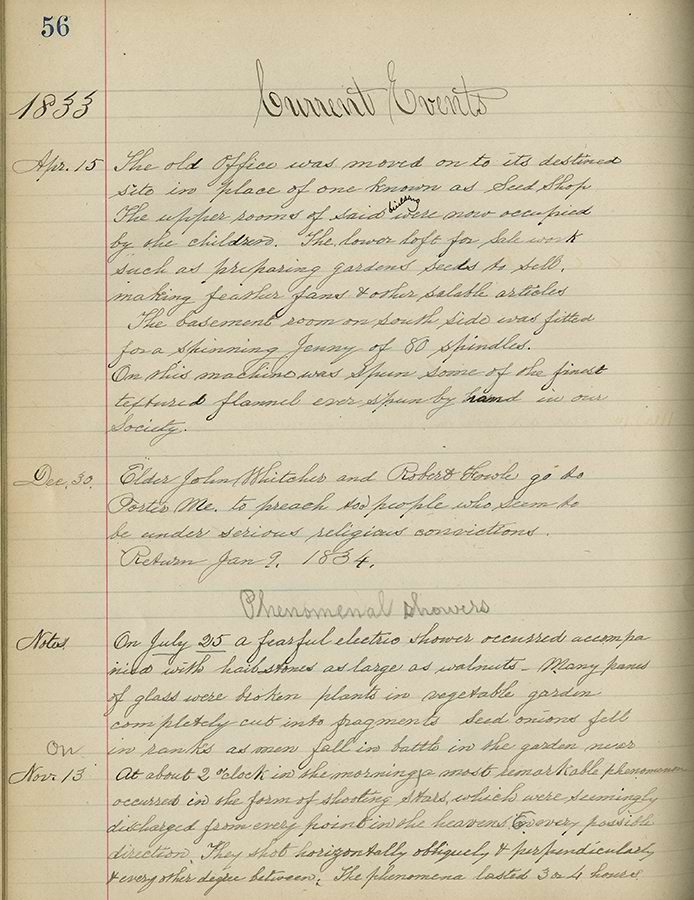 56
1833 Current Events
Apr. 15 The old Office was moved on to its destined
site in place of one known as Seed Shop
The upper rooms of said building were now occupied
by the children. The lower loft for Sale work
such as preparing gardens seeds to sell,
making feather fans & other salable articles
The basement room on south side was fitted
for a spinning Jenny of 80 spindles.
On this machine was spun some of the finest
textured flannel ever spun by hand in our
Society.
Dec. 30. Elder John Whitcher and Robert Fowle go to
Porter Me. to preach to people who seem to
be under serious religious convictions.
Return Jan 9. 1834.
Phenomenal showers
Notes On July 25 a fearful electric shower occurred accompa
nied with hail stones as large as walnuts - Many panes
of glass were broken plants in vegetable garden
completely cut into fragments Seed onions fell
in ranks as men fall in battle in the garden near
On
Nov. 13 At about 2 o'clock in the morning a most remarkable phenomenon
occurred in the form of shooting stars, which were seemingly
discharged from every point in the heavens in every possible
direction. They shot horizontally obliquely & perpendicularly
& every other degree between. The phenomena lasted 3 or 4 hours.